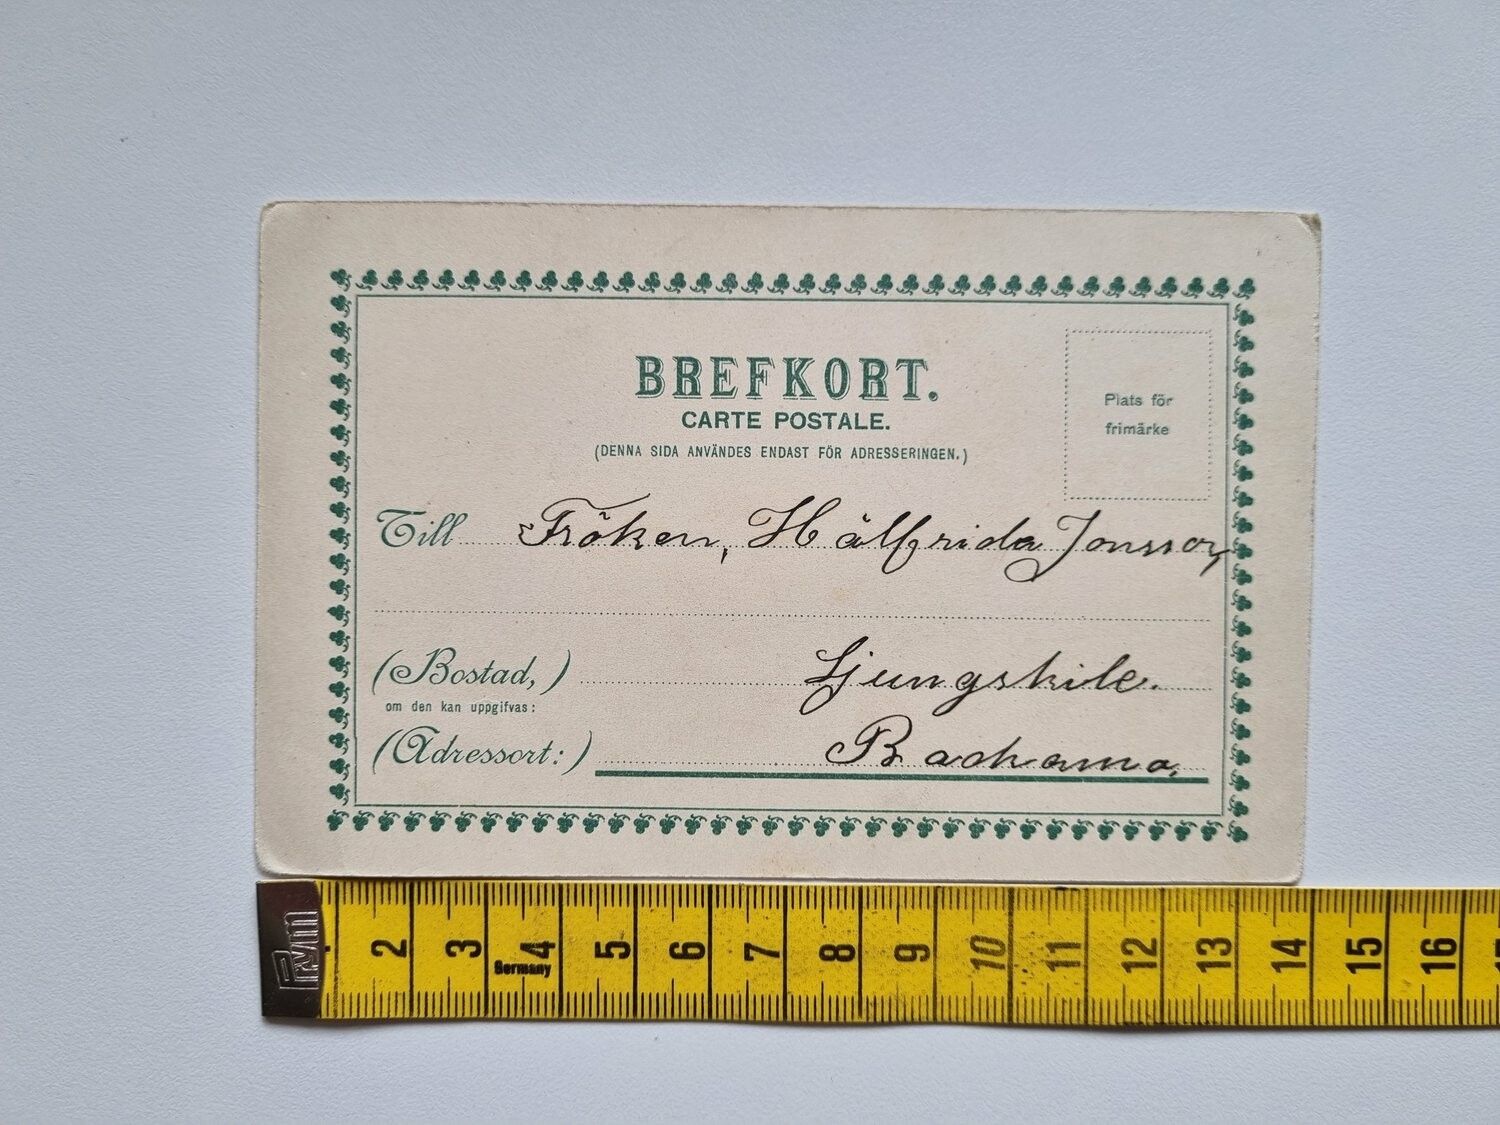 BREFKORT.
CARTE POSTALE.
(DENNA SIDA ANVÄNDES ENDAST FÖR ADRESSERINGEN.)
Plats för
frimärke
Till Fröken, Hälfrida Jonsson
(Bostad,) Ljungskile.
om den kan uppgifvas:
(Adressort:) Backamo.
Prym
2 3 4 5 6 7 8 9 10 11 12 13 14 15 16
Germany